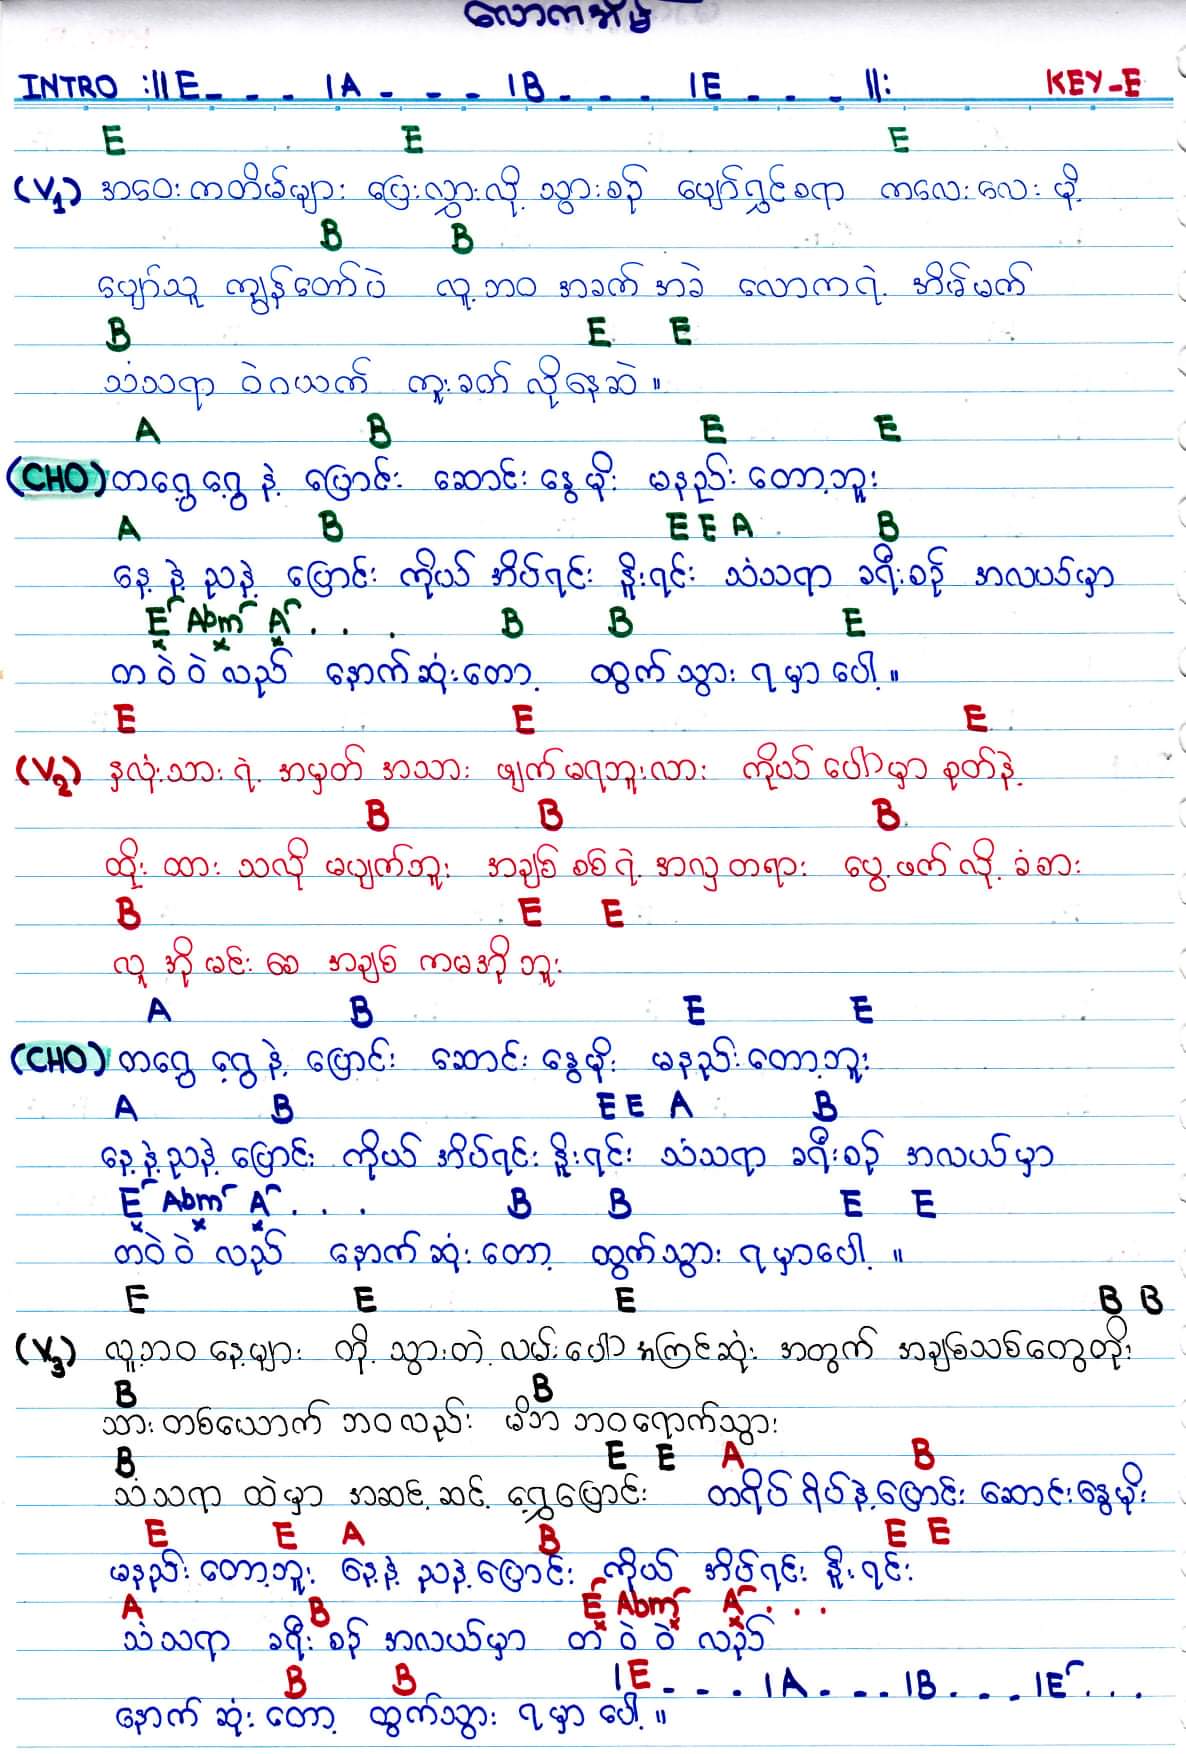 လောကအိမ်
INTRO :||E - - - |A - - - |B - - - |E - - - ||: KEY-E
E E E
(V1) အဝေးကတိမ်များ ပြေးလွှားလို့ သွားစဉ် ပျော်ရွှင်စရာ ကလေးလေးမို့
B B
ပျော်သူ ကျွန်တော်ပဲ လူ့ဘဝ အခက်အခဲ လောကရဲ့ အိမ်မက်
B E E
သံသရာ ဝဲဂယက် ကူးခတ်လို့နေဆဲ။
A B E E
(CHO) တရွေ့ရွေ့နဲ့ ပြောင်း ဆောင်းနွေမိုး မနည်းတော့ဘူး
A B E E A B
နေ့နဲ့ညနဲ့ ပြောင်း ကိုယ် အိပ်ရင်း နိုးရင်း သံသရာ ခရီးစဉ် အလယ်မှာ
E Abm A . . . B B E
တဝဲဝဲလည် နောက်ဆုံးတော့ ထွက်သွားရမှာပေါ့။
E E E
(V2) နှလုံးသားရဲ့ အမှတ်အသား ဖျက်မရဘူးလား ကိုယ်ပေါ်မှာ စုတ်နဲ့
B B B
ထိုးထားသလို မပျက်ဘူး အချစ်စစ်ရဲ့ အလှတရား ပွေ့ဖက်လို့ ခံစား
B E E
လူအိုမင်းစေ အချစ် ကမအိုဘူး
A B E E
(CHO) တရွေ့ရွေ့နဲ့ ပြောင်း ဆောင်းနွေမိုး မနည်းတော့ဘူး
A B E E A B
နေ့နဲ့ညနဲ့ ပြောင်း ကိုယ် အိပ်ရင်း နိုးရင်း သံသရာ ခရီးစဉ် အလယ်မှာ
E Abm A . . . B B E E
တဝဲဝဲလည် နောက်ဆုံးတော့ ထွက်သွားရမှာပေါ့။
E E E B B
(V3) လူ့ဘဝနေ့များ တို့သွားတဲ့လမ်းပေါ် အကြင်ဆုံး အတွက် အချစ်သစ်တွေတိုး
B B
သားတစ်ယောက် ဘဝလည်း မိဘ ဘဝရောက်သွား
B E E A B
သံသရာထဲမှာ အဆင့်ဆင့် ရွှေ့ပြောင်း တရိပ်ရိပ်နဲ့ပြောင်း ဆောင်းနွေမိုး
E E A B E E
မနည်းတော့ဘူး နေ့နဲ့ညနဲ့ပြောင်း ကိုယ် အိပ်ရင်း နိုးရင်း
A B E Abm A . . .
သံသရာ ခရီးစဉ် အလယ်မှာ တဝဲဝဲလည်
B B |E - - - |A - - - |B - - - |E . . .
နောက်ဆုံးတော့ ထွက်သွားရမှာပေါ့။